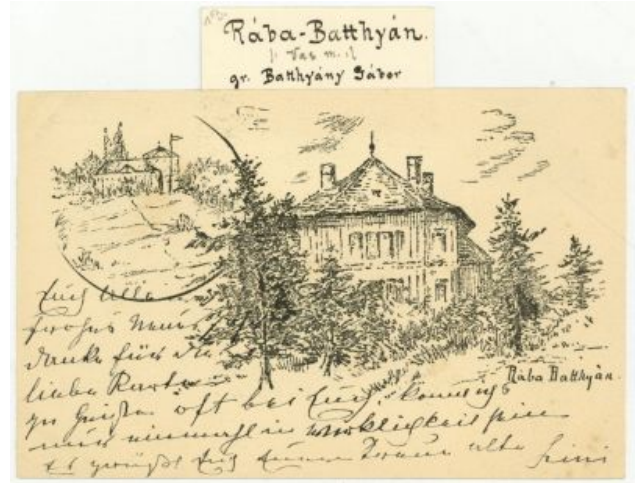 Rába-Batthyán.
(: Vas m. :)
gr. Batthyány Gábor
Rába Batthyán.
Euch Allen
frohes Neues
danke für die
liebe Karte
im Geiste oft bei Euch, komm ich
nur einmahl in Wirklichkeit
Es grüßt Euch Eure alte